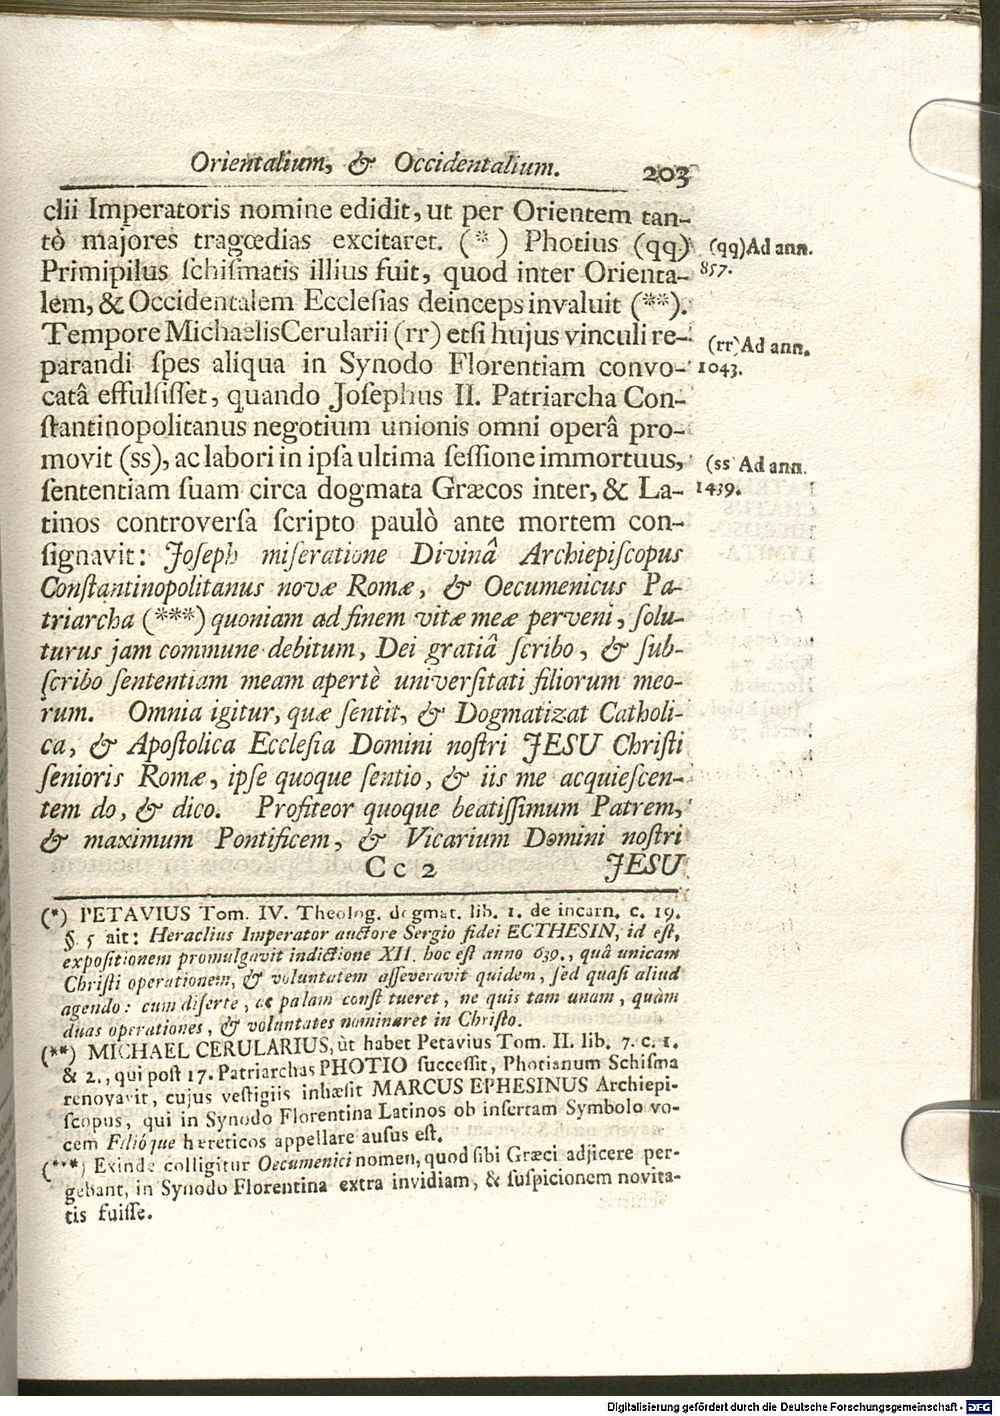 Orientalium, & Occidentalium. 203
clii Imperatoris nomine edidit, ut per Orientem tan-
tò majores tragœdias excitaret. (*) Photius (qq)
(qq) Ad ann.
857.
Primipilus ſchiſmatis illius fuit, quod inter Orienta-
lem, & Occidentalem Eccleſias deinceps invaluit (**).
Tempore Michaëlis Cerularii (rr) etſi hujus vinculi re-
(rr) Ad ann.
1043.
parandi ſpes aliqua in Synodo Florentiam convo-
catâ effulſiſſet, quando Joſephus II. Patriarcha Con-
ſtantinopolitanus negotium unionis omni operâ pro-
movit (ss), ac labori in ipſa ultima ſeſſione immortuus,
(ss Ad ann.
1439.
ſententiam ſuam circa dogmata Græcos inter, & La-
tinos controverſa ſcripto paulò ante mortem con-
ſignavit: Joſeph miſeratione Divinâ Archiepiſcopus
Conſtantinopolitanus novæ Romæ, & Oecumenicus Pa-
triarcha (***) quoniam ad finem vitæ meæ perveni, ſolu-
turus jam commune debitum, Dei gratiâ ſcribo, & ſub-
ſcribo ſententiam meam apertè univerſitati filiorum meo-
rum. Omnia igitur, quæ ſentit, & Dogmatizat Catholi-
ca, & Apoſtolica Eccleſia Domini noſtri JESU Chriſti
ſenioris Romæ, ipſe quoque ſentio, & iis me acquieſcen-
tem do, & dico. Profiteor quoque beatiſſimum Patrem,
& maximum Pontificem, & Vicarium Domini noſtri
Cc 2 JESU
(*) PETAVIUS Tom. IV. Theolog. dogmat. lib. 1. de incarn. c. 19.
§. 5 ait: Heraclius Imperator auctore Sergio fidei ECTHESIN, id eſt,
expoſitionem promulgavit indictione XII. hoc eſt anno 639., quâ unicam
Chriſti operationem, & voluntatem aſſeveravit quidem, ſed quaſi aliud
agendo: cum diſerte, ac palam conſt tueret, ne quis tam unam, quàm
duas operationes, & voluntates nominaret in Chriſto.
(**) MICHAEL CERULARIUS, ùt habet Petavius Tom. II. lib. 7. c. 1.
& 2., qui poſt 17. Patriarchas PHOTIO ſucceſſit, Photianum Schiſma
renovavit, cujus veſtigiis inhæſit MARCUS EPHESINUS Archiepi-
ſcopus, qui in Synodo Florentina Latinos ob inſertam Symbolo vo-
cem Filióque hæreticos appellare auſus eſt.
(***) Exinde colligitur Oecumenici nomen, quod ſibi Græci adjicere per-
gebant, in Synodo Florentina extra invidiam, & ſuſpicionem novita-
tis fuiſſe.
Digitalisierung gefördert durch die Deutsche Forschungsgemeinschaft - DFG